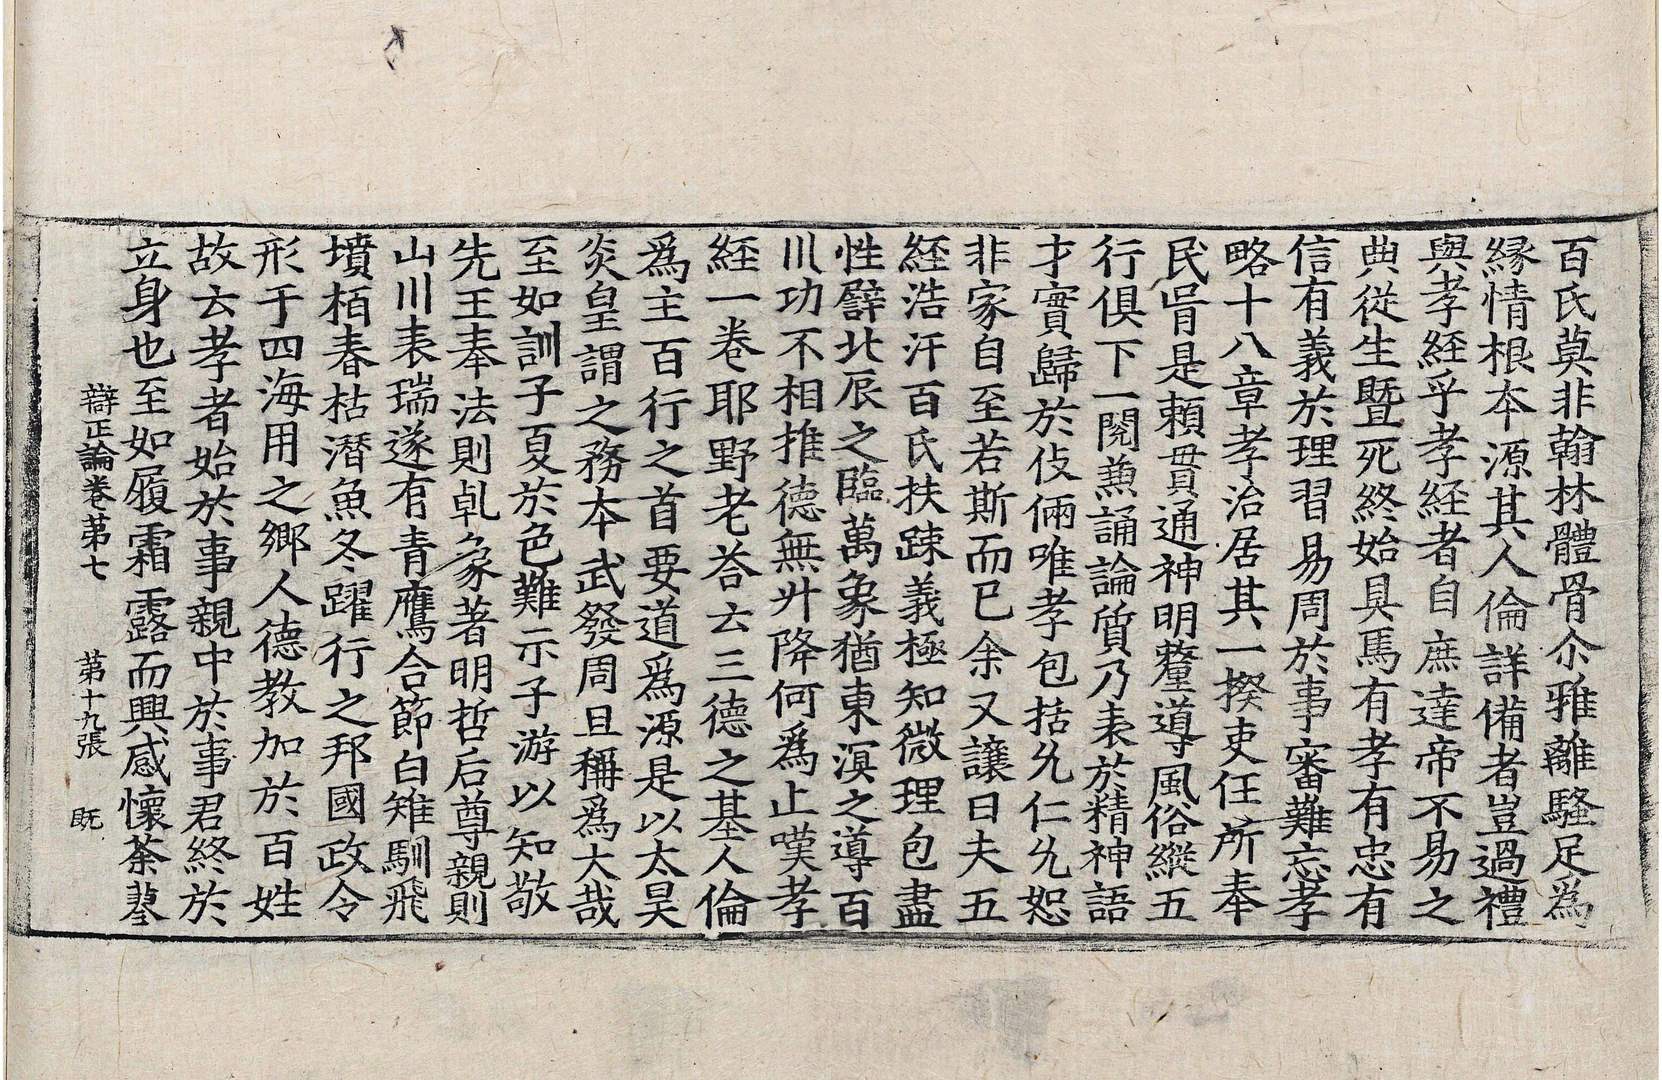 百氏莫非翰林體骨尒雅離騷足為
緣情根本源其人倫詳備者豈過禮
與孝經乎孝經者自庶達帝不易之
典從生暨死終始具焉有孝有忠有
信有義於理習易周於事審難忘孝
略十八章孝治居其一揆吏任所奉
民胥是賴貫通神明釐導風俗縱五
行俱下一閱兼誦論質乃表於精神語
才實歸於伎倆唯孝包括允仁允恕
非家自至若斯而已余又讓曰夫五
經浩汗百氏扶踈義極知微理包盡
性譬北辰之臨萬象猶東溟之導百
川功不相推德無升降何為止嘆孝
經一卷耶野老荅云三德之基人倫
為主百行之首要道為源是以太昊
炎皇謂之務本武發周旦稱為大哉
至如訓子夏於色難示子游以知敬
先王奉法則乹象著明哲后尊親則
山川表瑞遂有青鷹合節白雉馴飛
墳栢春枯潛魚冬躍行之邦國政令
形于四海用之鄉人德教加於百姓
故云孝者始於事親中於事君終於
立身也至如履霜露而興感懷荼蓼
辯正論卷第七 第十九張 既